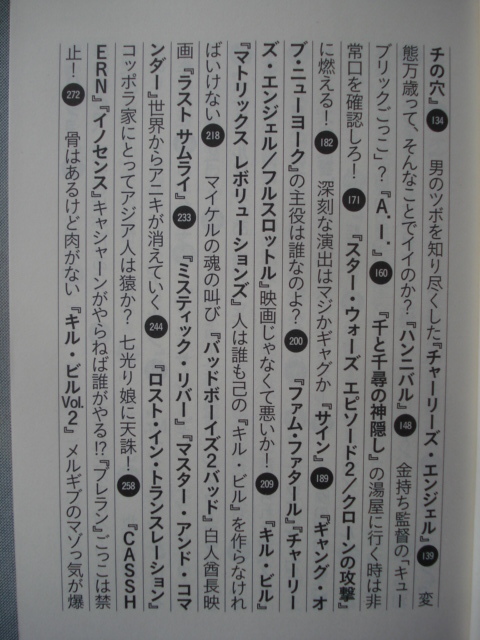 チの穴』134　男のツボを知り尽くした『チャーリーズ・エンジェル』139　変
態万歳って、そんなことでイイのか？『ハンニバル』148　金持ち監督の「キュー
ブリックごっこ」？『A.I.』160　『千と千尋の神隠し』の湯屋に行く時は非
常口を確認しろ！171　『スター・ウォーズ エピソード2／クローンの攻撃』
に燃える！182　深刻な演出はマジかギャグか『サイン』189　『ギャング・オ
ブ・ニューヨーク』の主役は誰なのよ？200　『ファム・ファタール』『チャーリー
ズ・エンジェル／フルスロットル』映画じゃなくて悪いか！209　『キル・ビル』
『マトリックス レボリューションズ』人は誰も己の『キル・ビル』を作らなけれ
ばいけない218　マイケルの魂の叫び『バッドボーイズ2バッド』白人酋長映
画『ラスト サムライ』233　『ミスティック・リバー』『マスター・アンド・コマ
ンダー』世界からアニキが消えていく244　『ロスト・イン・トランスレーション』
コッポラ家にとってアジア人は猿か？ 七光り娘に天誅！258　『CASSH
ERN』『イノセンス』キャシャーンがやらねば誰がやる!?『ブレラン』ごっこは禁
止！272　骨はあるけど肉がない『キル・ビルVol.2』メルギブのマゾっ気が爆